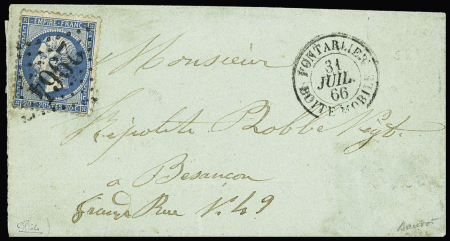 EMPIRE FRANC
2961
PONTARLIER
31
JUIL.
66
BOITE MOBILE
Monsieur
Hipolite Robbe Negt.
à Besançon
Grande Rue N. 49